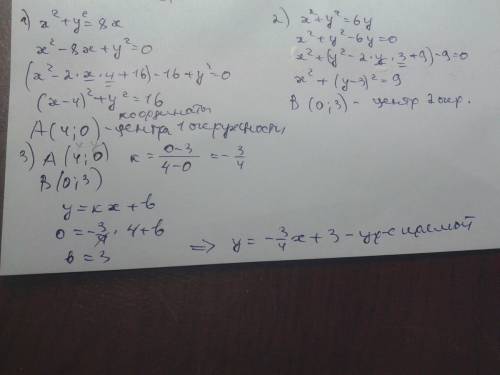 1) x² + y² = 8x
x² - 8x + y² = 0
(x² - 2·x·4 + 16) - 16 + y² = 0
(x-4)² + y² = 16
координаты
A(4;0) - центра 1 окружности
2) x² + y² = 6y
x² + y² - 6y = 0
x² + (y² - 2·y·3 + 9) - 9 = 0
x² + (y-3)² = 9
B(0;3) - центр 2 окр.
3) A(4;0) k = (0-3)/(4-0) = -3/4
B(0;3)
y = kx + b
0 = -3/4 · 4 + b
b = 3
=> y = -3/4 x + 3 - ур-е прямой